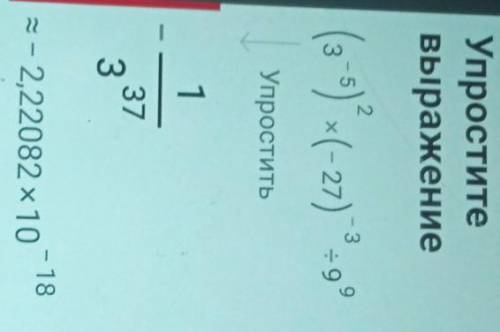 Упростите
выражение
(3⁻⁵)² × (−27)⁻³ ÷ 9⁹
↓ Упростить
− 1/3³⁷
≈ − 2,22082 × 10⁻¹⁸